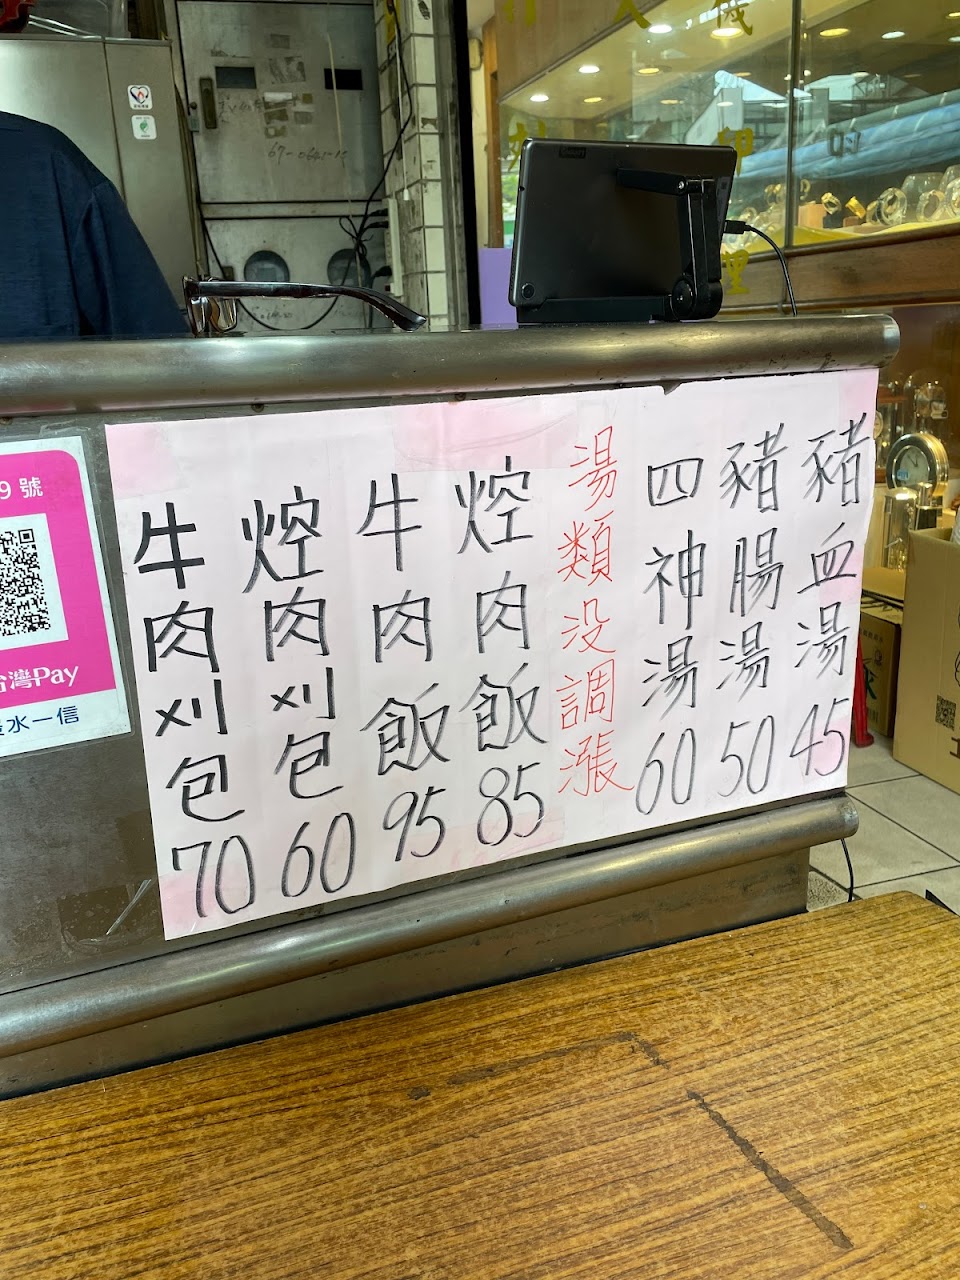 豬血湯45
豬腸湯50
四神湯60
湯類没調漲
焢肉飯85
牛肉飯95
焢肉刈包60
牛肉刈包70
9 號
台灣Pay
水一信